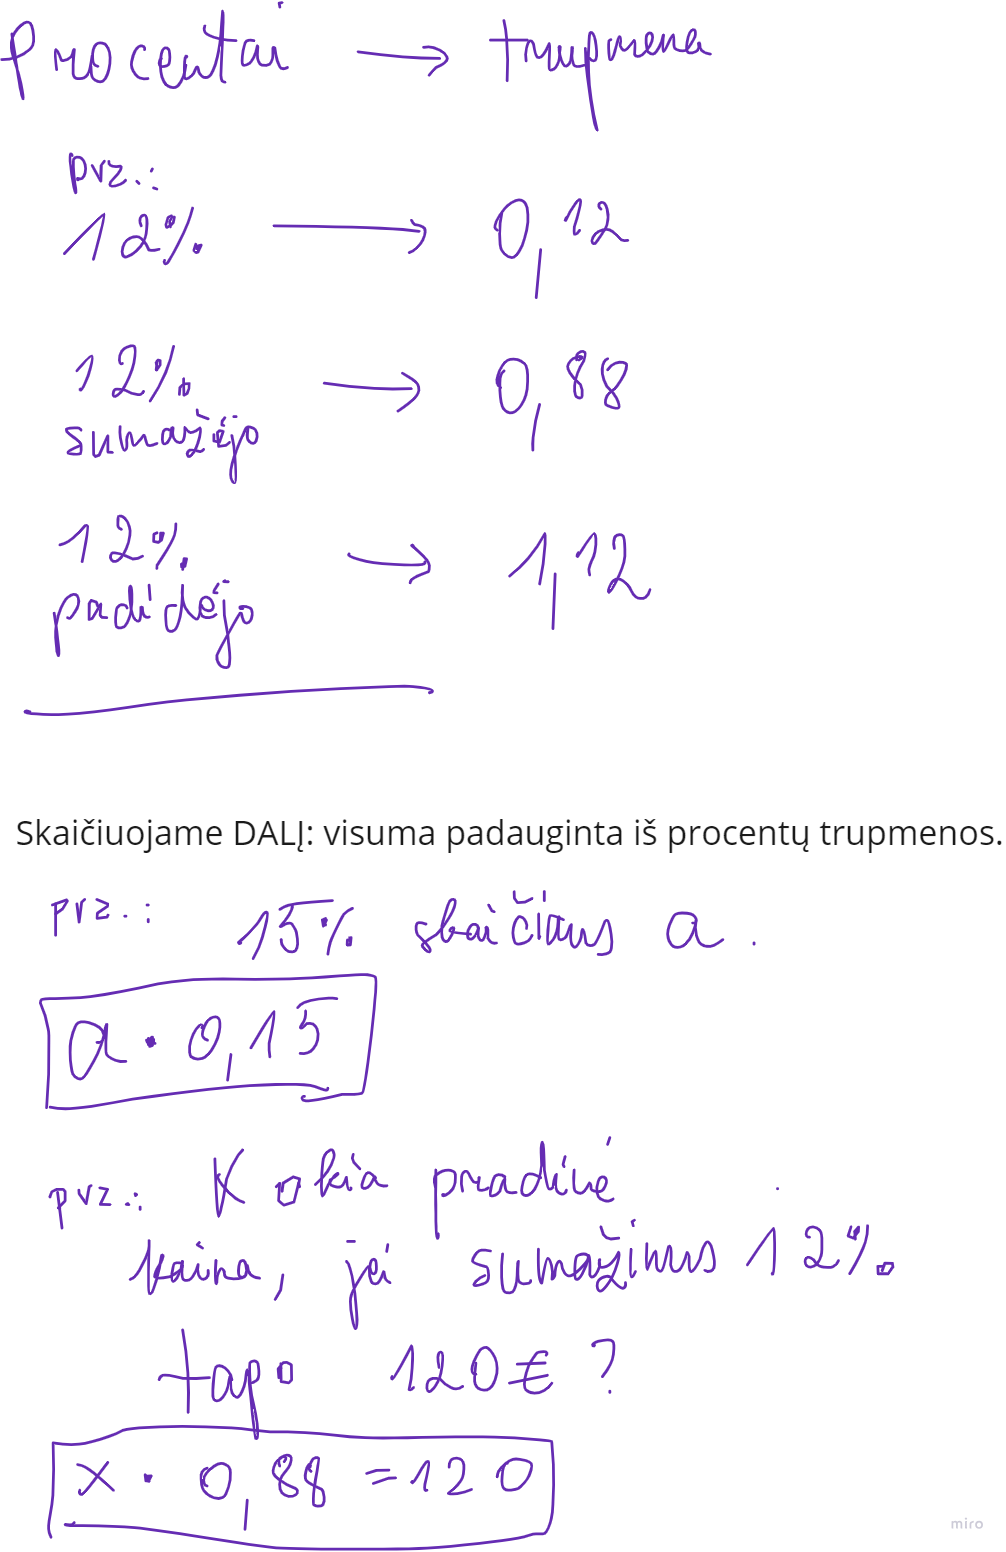 Procentai → trupmena
pvz.:
12% → 0,12
12% → 0,88
sumažėjo
12% → 1,12
padidėjo
Skaičiuojame DALĮ: visuma padauginta iš procentų trupmenos.
pvz.:
15% skaičiaus a.
a · 0,15
pvz.: Kokia pradinė
kaina, jei sumažinus 12%
tapo 120€?
x · 0,88 = 120
miro